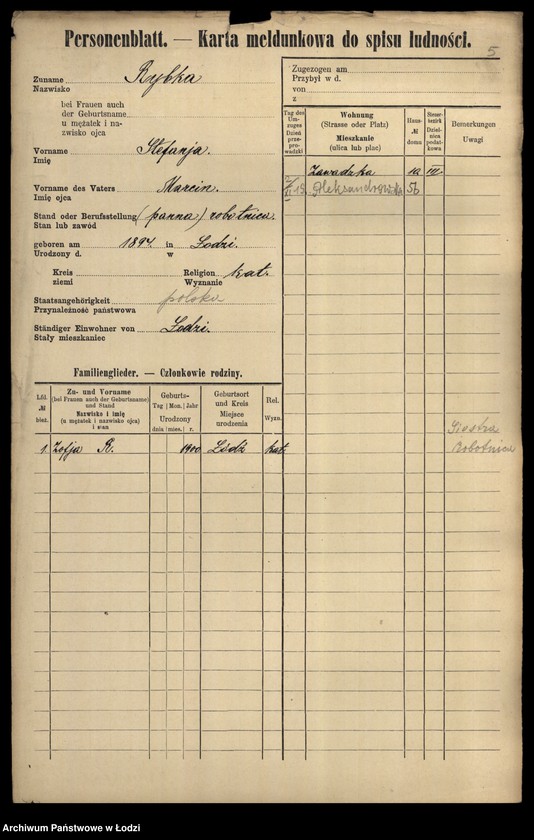 Personenblatt. — Karta meldunkowa do spisu ludności.
5
Zuname Rybka
Nazwisko
bei Frauen auch
der Geburtsname
u mężatek i na-
zwisko ojca
Vorname Stefanja.
Imię
Vorname des Vaters Marcin.
Imię ojca
Stand oder Berufsstellung (panna) robotnica.
Stan lub zawód
geboren am 1894. in Łodzi.
Urodzony d. w
Kreis Religion kat.
ziemi Wyznanie
Staatsangehörigkeit polska
Przynależność państwowa
Ständiger Einwohner von Łodzi.
Stały mieszkaniec
Zugezogen am
Przybył w d.
von
z
Tag des Um-zuges Dzień prze-pro-wadzki
Wohnung
(Strasse oder Platz)
Mieszkanie
(ulica lub plac)
Haus-
№
domu
Steuer-bezirk Dziel-nica podat-kowa
Bemerkungen
Uwagi
Zawadzka 12 III.
19 Aleksandrowska 56
Familienglieder. — Członkowie rodziny.
Lfd.
№
bież.
Zu- und Vorname
(bei Frauen auch der Geburtsname)
und Stand
Nazwisko i imię
(u mężatek i nazwisko ojca)
i stan
Geburts-
Tag | Mon. | Jahr
Urodzony
dnia | mies. | r.
Geburtsort
und Kreis
Miejsce
urodzenia
Rel.
Wyzn.
1 Zofja R. 1900 Łódź kat.
Siostra
robotnica
Archiwum Państwowe w Łodzi